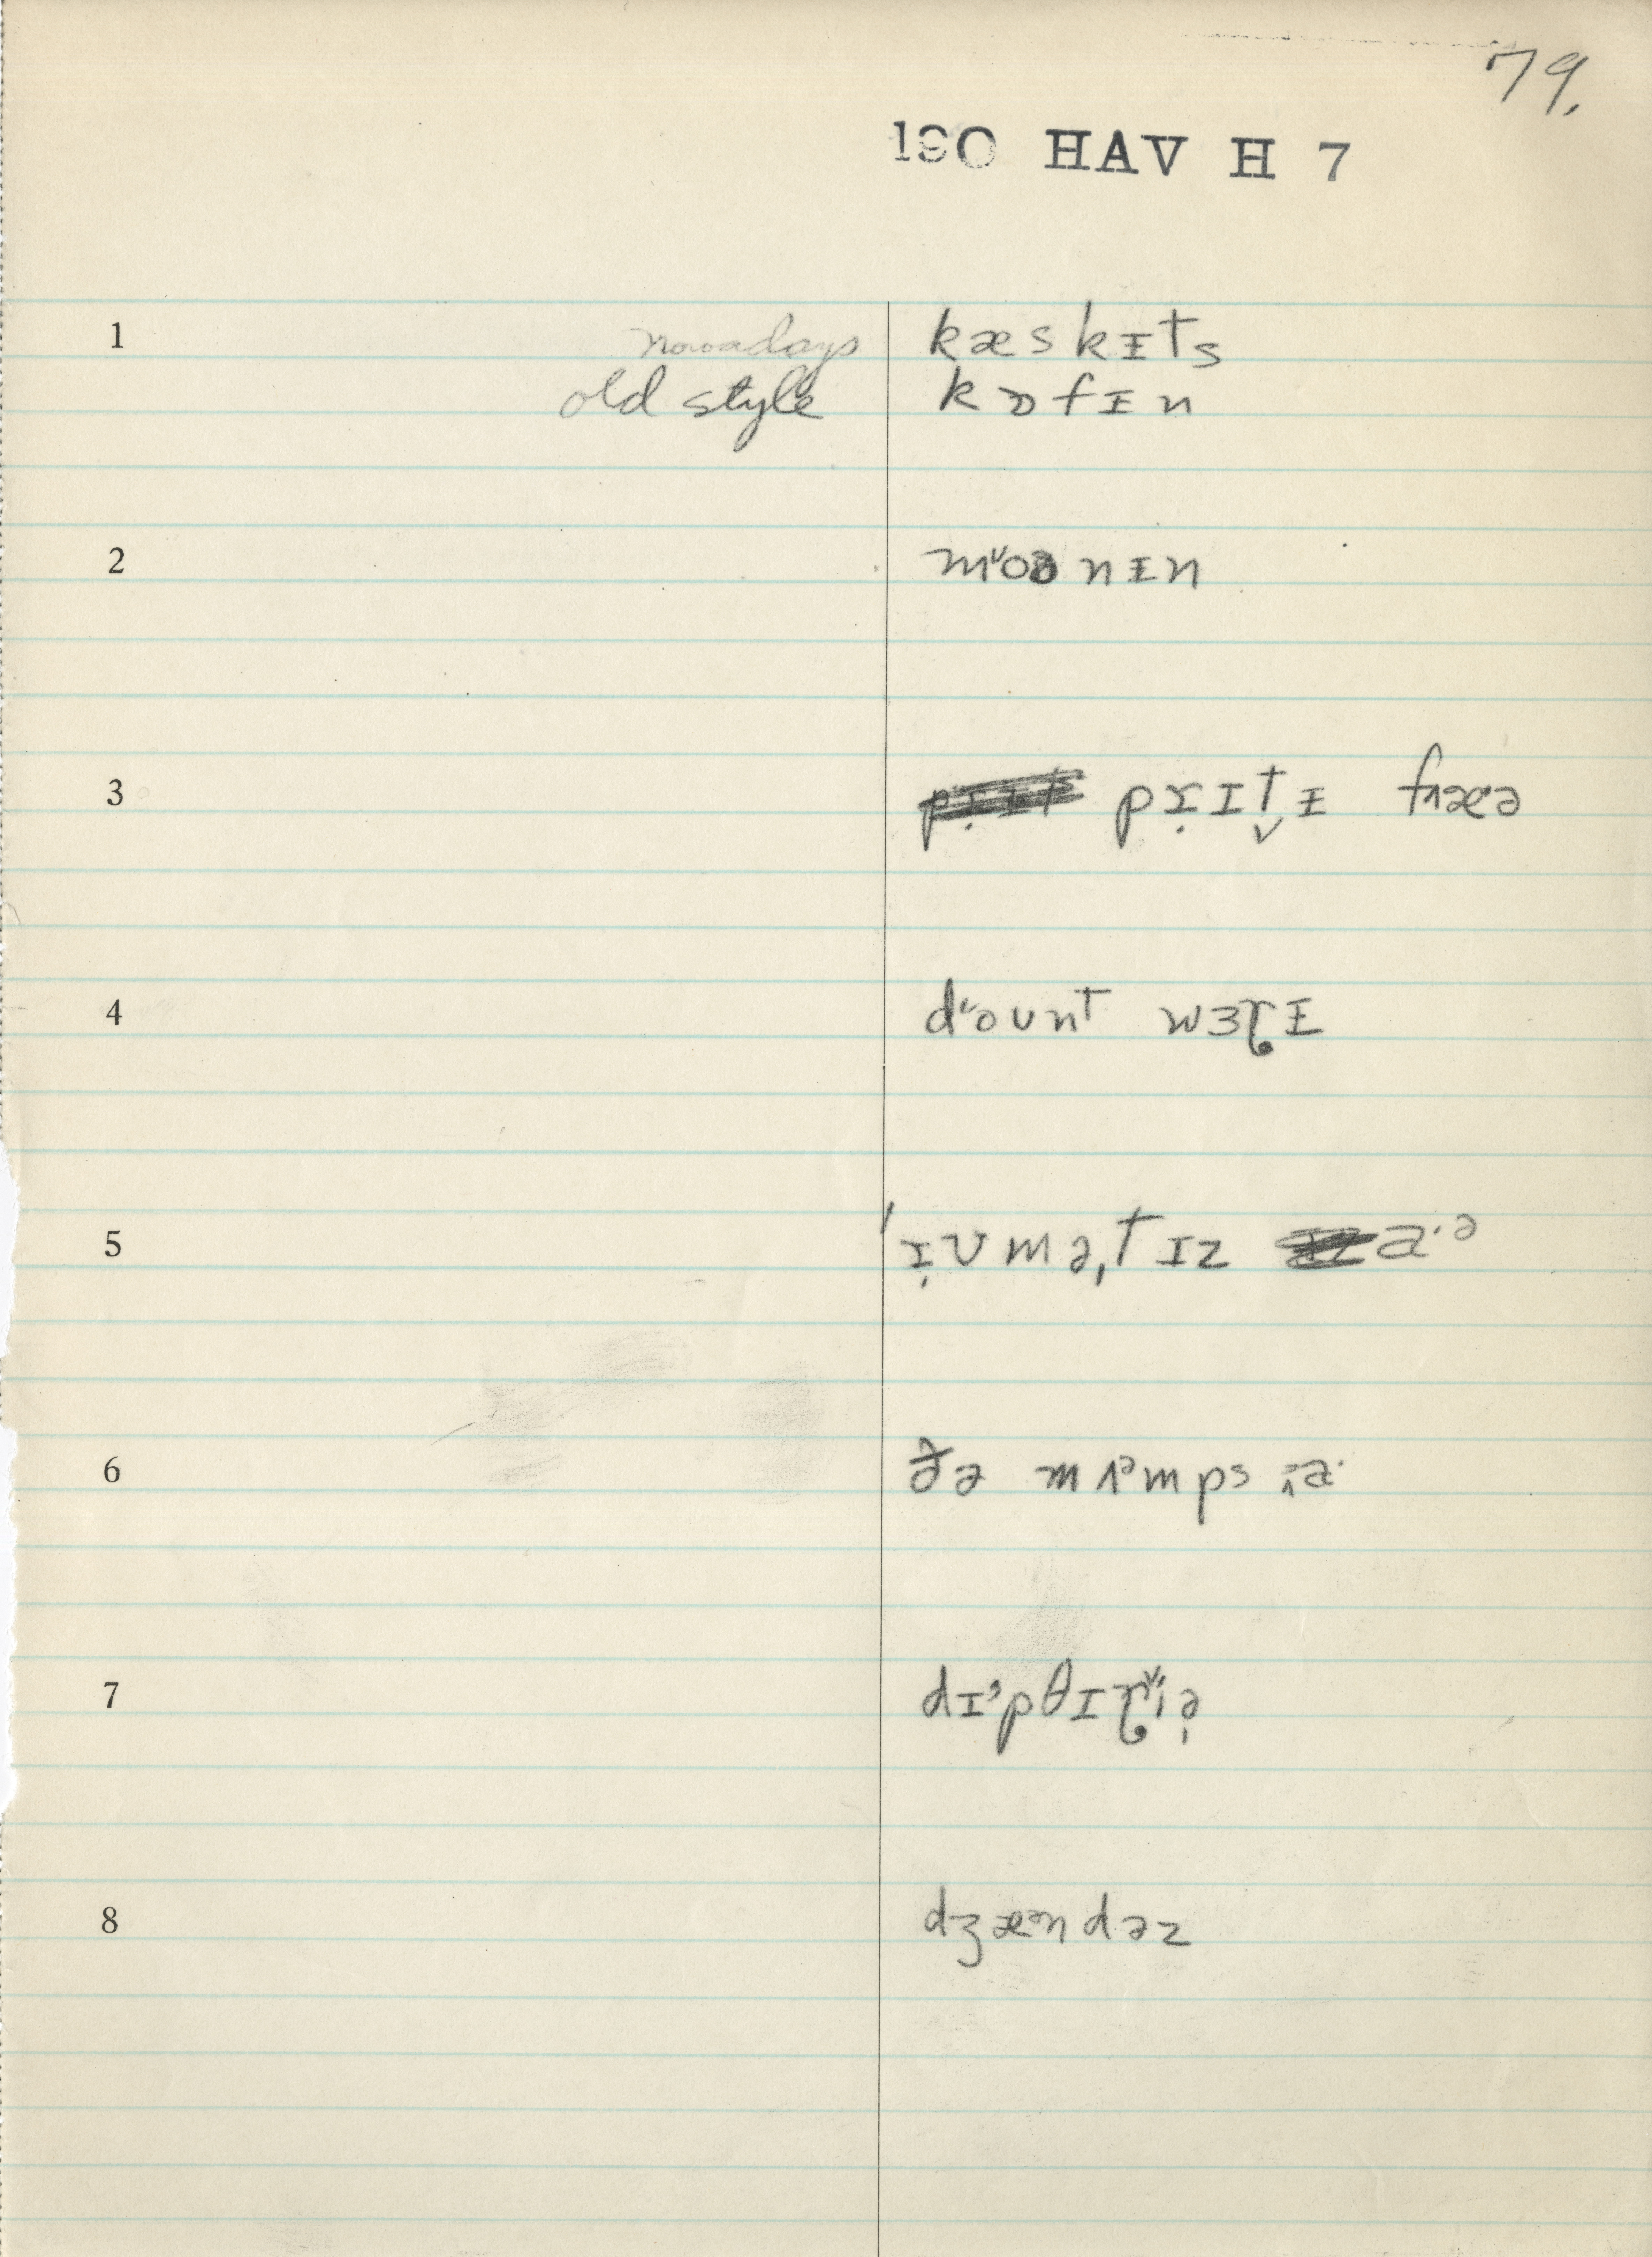 79.
190 HAV H 7
1 nowadays kæskᵻts
old style kɒfᵻn
2 mᵛoənᵻn
3 pɾ̣ɪt̬ᵻ fɪæ·ə
4 dᵛoʊnt wɜɽᵻ
5 ˈɪ̣ʊməˌtɪz a·ᵊ
6 ðə mʌᵊmps ɪa·
7 dɪᵊpθɪɽᵛiə̩
8 dʒæᵊndəz